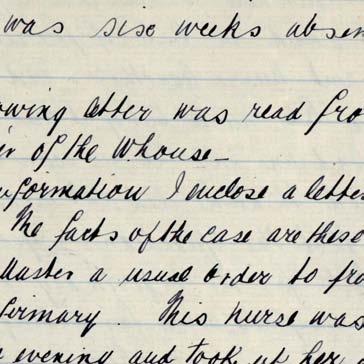 was six weeks absen
owing letter was read fro
er of the Whouse -
nformation I enclose a lette
The facts of the case are these
Master a usual order to fr
firmary. This nurse was
e evening and took up her